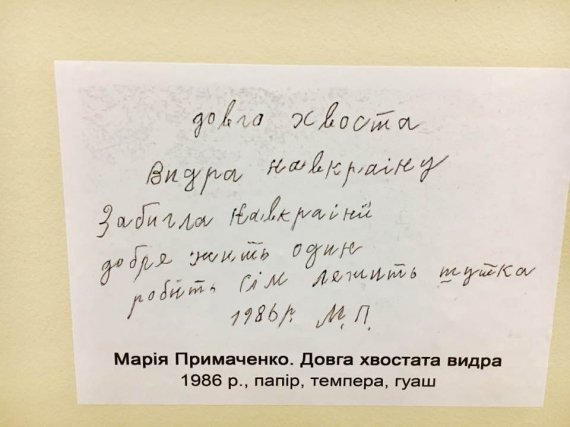 довга хвоста
видра навкраіну
Забигла навкраіни
добре жить один
робить сім лежить шутка
1986 р. М. П.
Марія Примаченко. Довга хвостата видра
1986 р., папір, темпера, гуаш